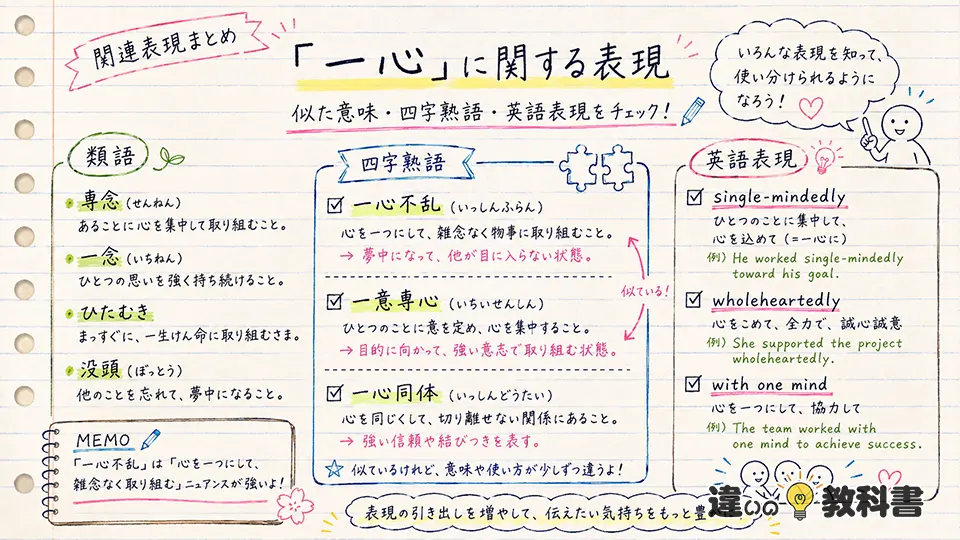 関連表現まとめ
「一心」に関する表現
似た意味・四字熟語・英語表現をチェック!
いろんな表現を知って、
使い分けられるように
なろう!
類語
専念(せんねん)
あることに心を集中して取り組むこと。
一念(いちねん)
ひとつの思いを強く持ち続けること。
ひたむき
まっすぐに、一生けん命に取り組むさま。
没頭(ぼっとう)
他のことを忘れて、夢中になること。
MEMO
「一心不乱」は「心を一つにして、
雑念なく取り組む」ニュアンスが強いよ!
四字熟語
一心不乱(いっしんふらん)
心を一つにして、雑念なく物事に取り組むこと。
→ 夢中になって、他が目に入らない状態。
一意専心(いちいせんしん)
ひとつのことに意を定め、心を集中すること。
→ 目的に向かって、強い意志で取り組む状態。
似ている!
一心同体(いっしんどうたい)
心を同じくして、切り離せない関係にあること。
→ 強い信頼や結びつきを表す。
☆ 似ているけれど、意味や使い方が少しずつ違うよ!
英語表現
single-mindedly
ひとつのことに集中して、
心を込めて(=一心に)
例)He worked single-mindedly
toward his goal.
wholeheartedly
心をこめて、全力で、誠心誠意
例)She supported the project
wholeheartedly.
with one mind
心を一つにして、協力して
例)The team worked with
one mind to achieve success.
表現の引き出しを増やして、伝えたい気持ちをもっと豊
違いの教科書